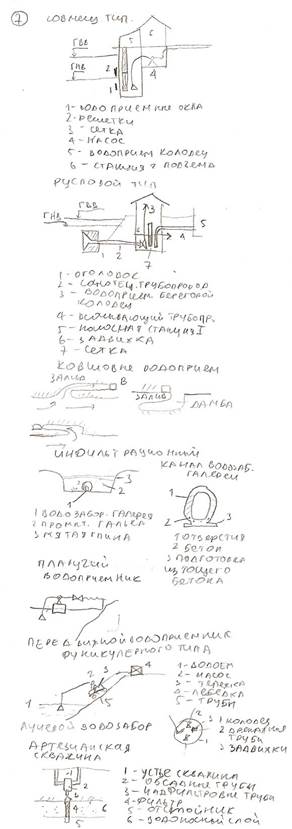 7 СОВМЕЩ ТИП.
ГВВ
5 6
ГНВ
2
1
4
1- ВОДОПРИЕМНЕ ОКНА
2- РЕШЕТКИ
3 - СЕТКА
4 - НАСОС
5 - ВОДОПРИЕМ КОЛОДЕЦ
6 - СТАНЦИЯ 1 ПОДЪЕМА
РУСЛОВОЙ ТИП
ГВВ
ГНВ
3
5
1 2
4
7
1 - ОГОЛОВОК
2 - САМОТЕЧ. ТРУБОПРОВОД
3 - ВОДОПРИЕМ БЕРЕГОВОЙ
КОЛОДЕЦ
4 - ВСАСЫВАЮЩИЙ ТРУБОПР.
5 - НАСОСНАЯ СТАНЦИЯ I
6 - ЗАДВИЖКА
7 - СЕТКА
КОВШОВЫЕ ВОДОПРИЕМ
ЗАЛИВ
В
ЗАЛИВ
ДАМБА
ИНФИЛЬТРАЦИОННЫЙ
3
2
1
1 ВОДОЗАБОР. ГАЛЕРЕЯ
2 ПРОМЫТ. ГАЛЬКА
3 МЯТАЯ ГЛИНА
КАНАЛ ВОДОЗАБ.
ГАЛЕРЕИ
1
2 3
1 ОТВЕРСТИЯ
2 БЕТОН
3 ПОДГОТОВКА
ИЗ ТОЩЕГО
БЕТОНА
ПЛАВУЧИЙ
ВОДОПРИЕМНИК
ПЕРЕДВИЖНОЙ ВОДОПРИЕМНИК
ФУНИКУЛЕРНОГО ТИПА
2 3 4
1
5
1 - ВОДОЕМ
2 - НАСОС
3 - ТЕЛЕЖКА
4 - ЛЕБЕДКА
5 - ТРУБЫ
ЛУЧЕВОЙ ВОДОЗАБОР
2
1
3
1 КОЛОДЕЦ
2 ДРЕНАЖНАЯ
ТРУБЫ
3 ЗАДВИЖКИ
АРТЕЗИАНСКАЯ
СКВАЖИНА
1
2
3
4
5
6
1 - УСТЬЕ СКВАЖИНА
2 - ОБСАДНЫЕ ТРУБЫ
3 - НАДФИЛЬТРОВЫЕ ТРУБЫ
4 - ФИЛЬТР
5 - ОТСТОЙНИК
6 - ВОДОНОСНЫЙ СЛОЙ